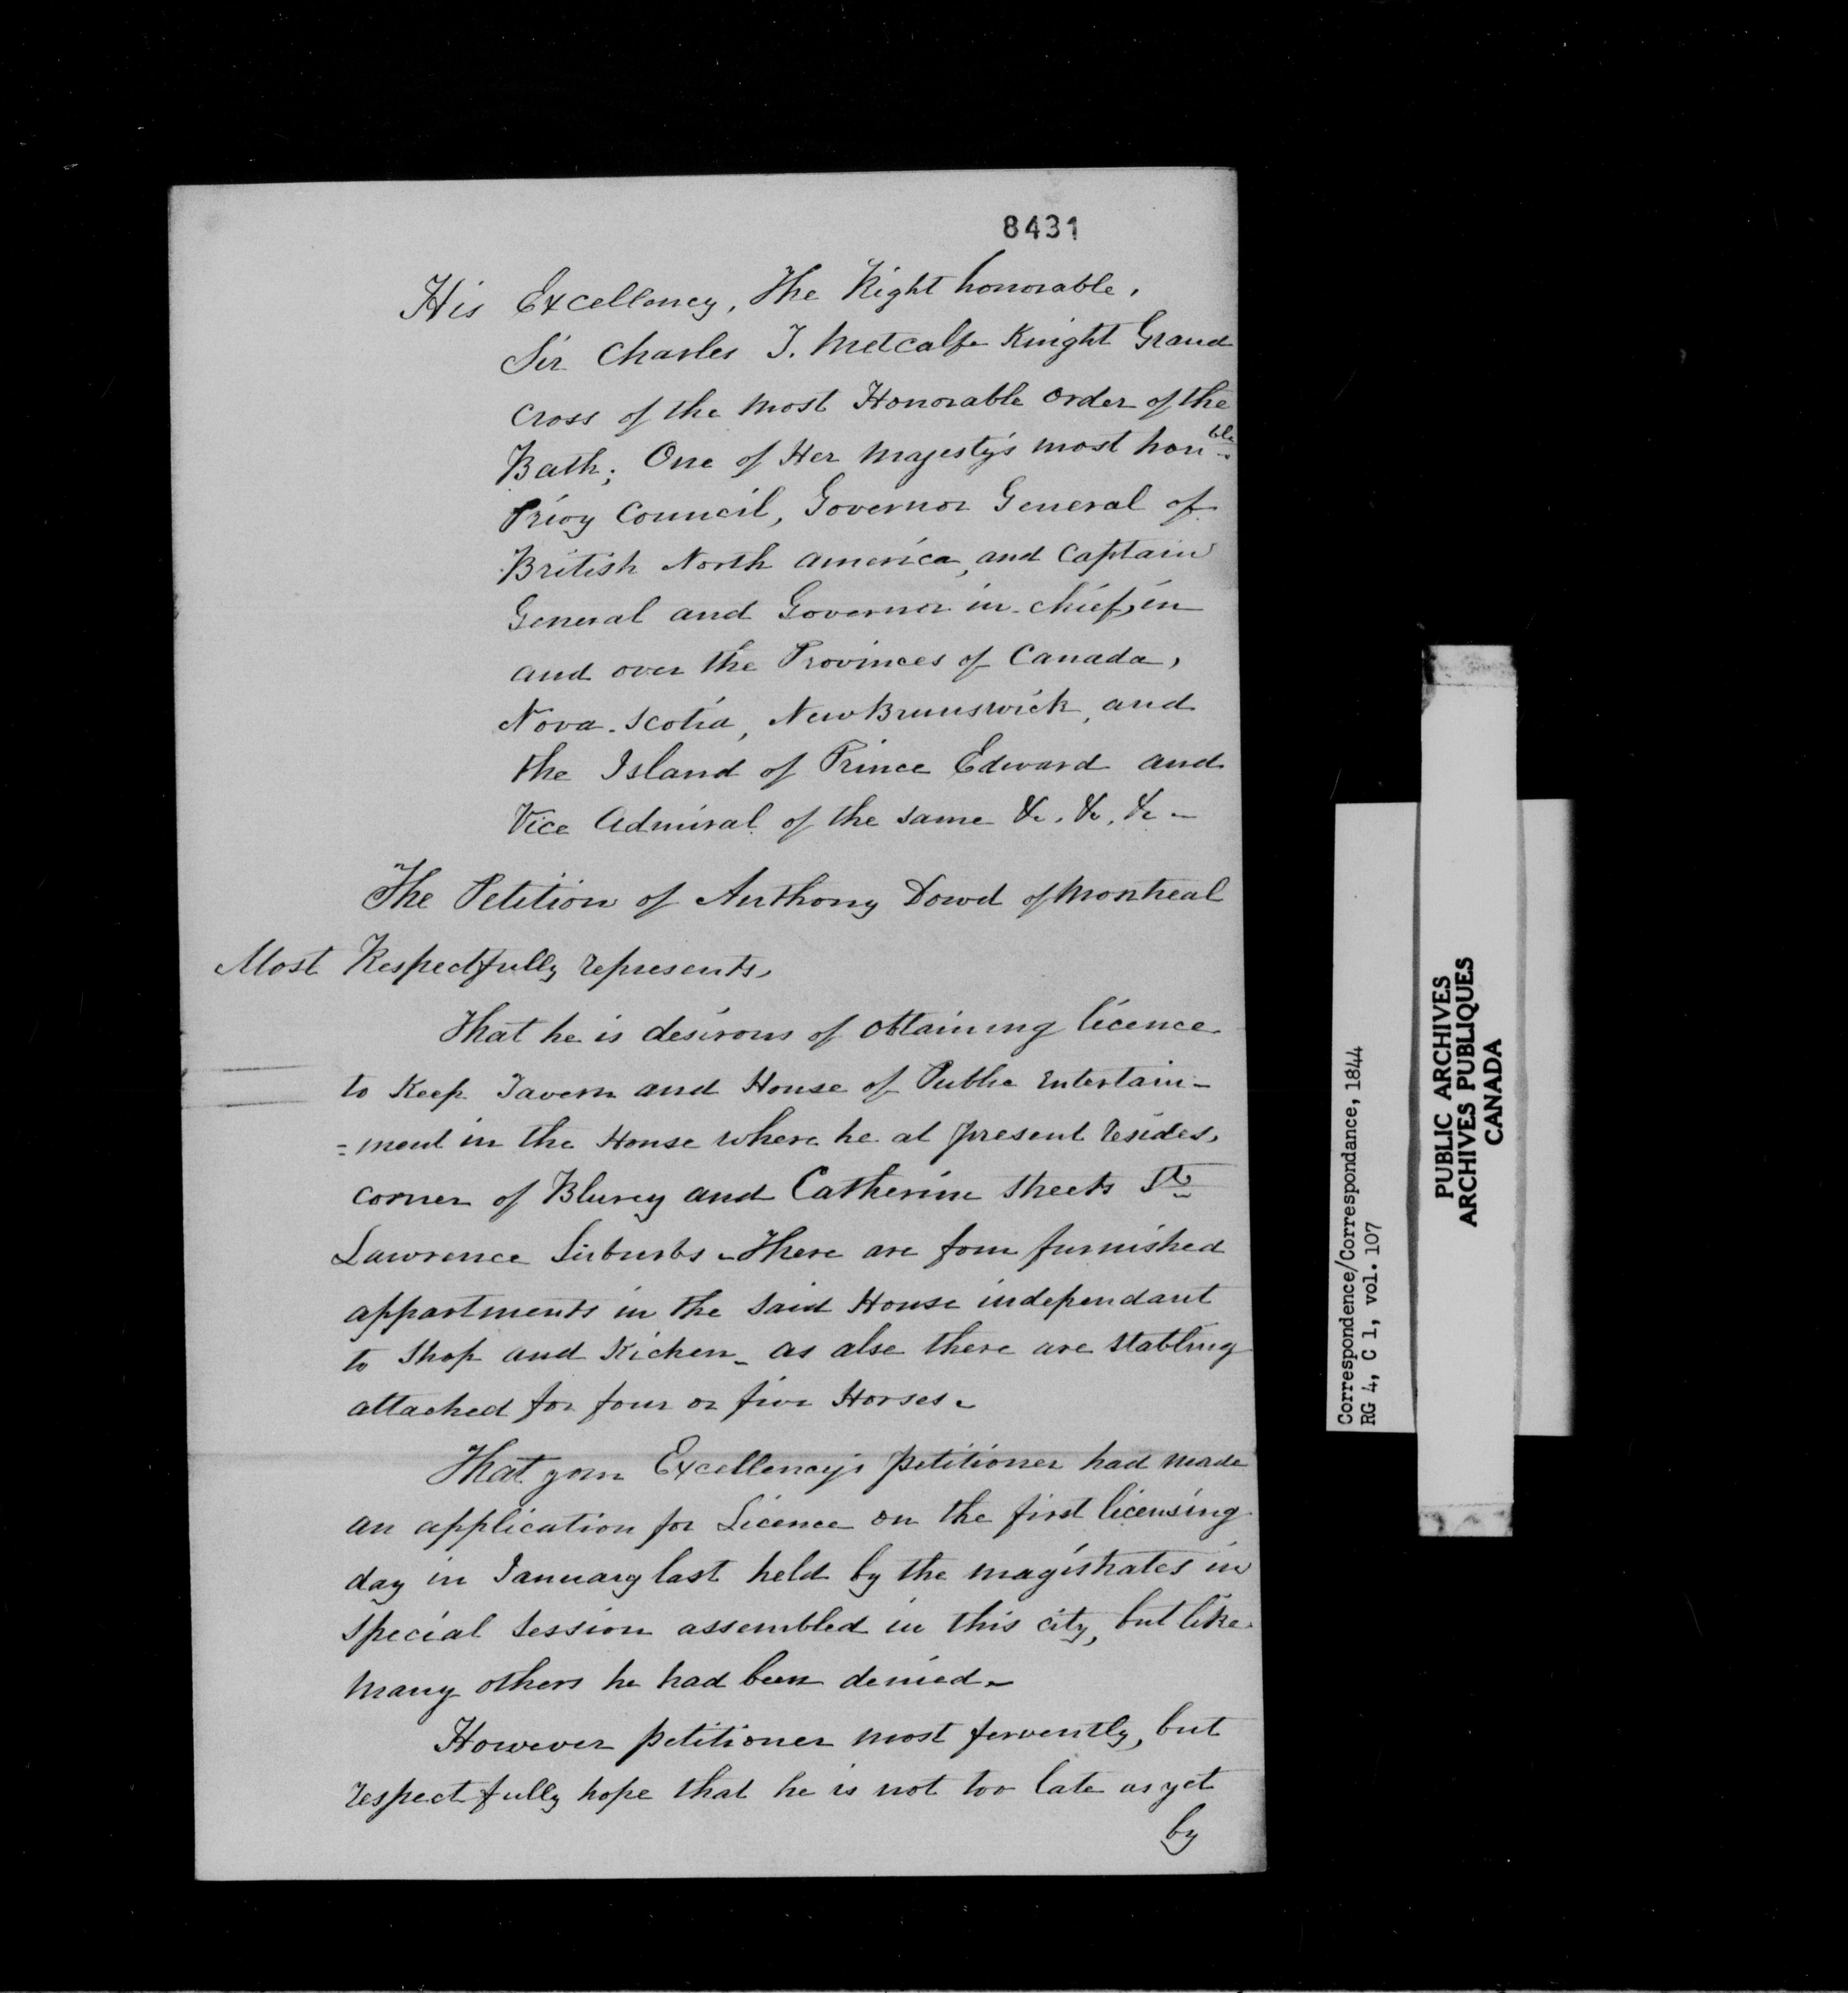 8431
His Excellency, The Right honorable,
Sir Charles T. Metcalfe Knight Grand
Cross of the most Honorable order of the
Bath; One of Her Majesty's most honble
Privy Council, Governor General of
British North America, and Captain
General and Governor in-chief, in
and over the Provinces of Canada,
Nova-Scotia, New Brunswick, and
the Island of Prince Edward and
Vice Admiral of the same &c. &c. &c -
The Petition of Anthony Dowd of Montreal
Most Respectfully represents,
That he is desirous of obtaining licence
to Keep Tavern and House of Public Entertain-
=ment in the House where he at present resides,
corner of Blurey and Catherine Streets St
Lawrence Suburbs - There are four furnished
appartments in the said House independant
to Shop and Kichen - as also there are Stabling
attached for four or five Horses -
That your Excellency's petitioner had made
an application for Licence on the first licensing
day in January last held by the magistrates in
Special Session assembled in this city, but like
many others he had been denied -
However petitioner most fervently, but
respectfully hope that he is not too late as yet
by
Correspondence/Correspondance, 1844
RG 4, C 1, vol. 107
PUBLIC ARCHIVES
ARCHIVES PUBLIQUES
CANADA